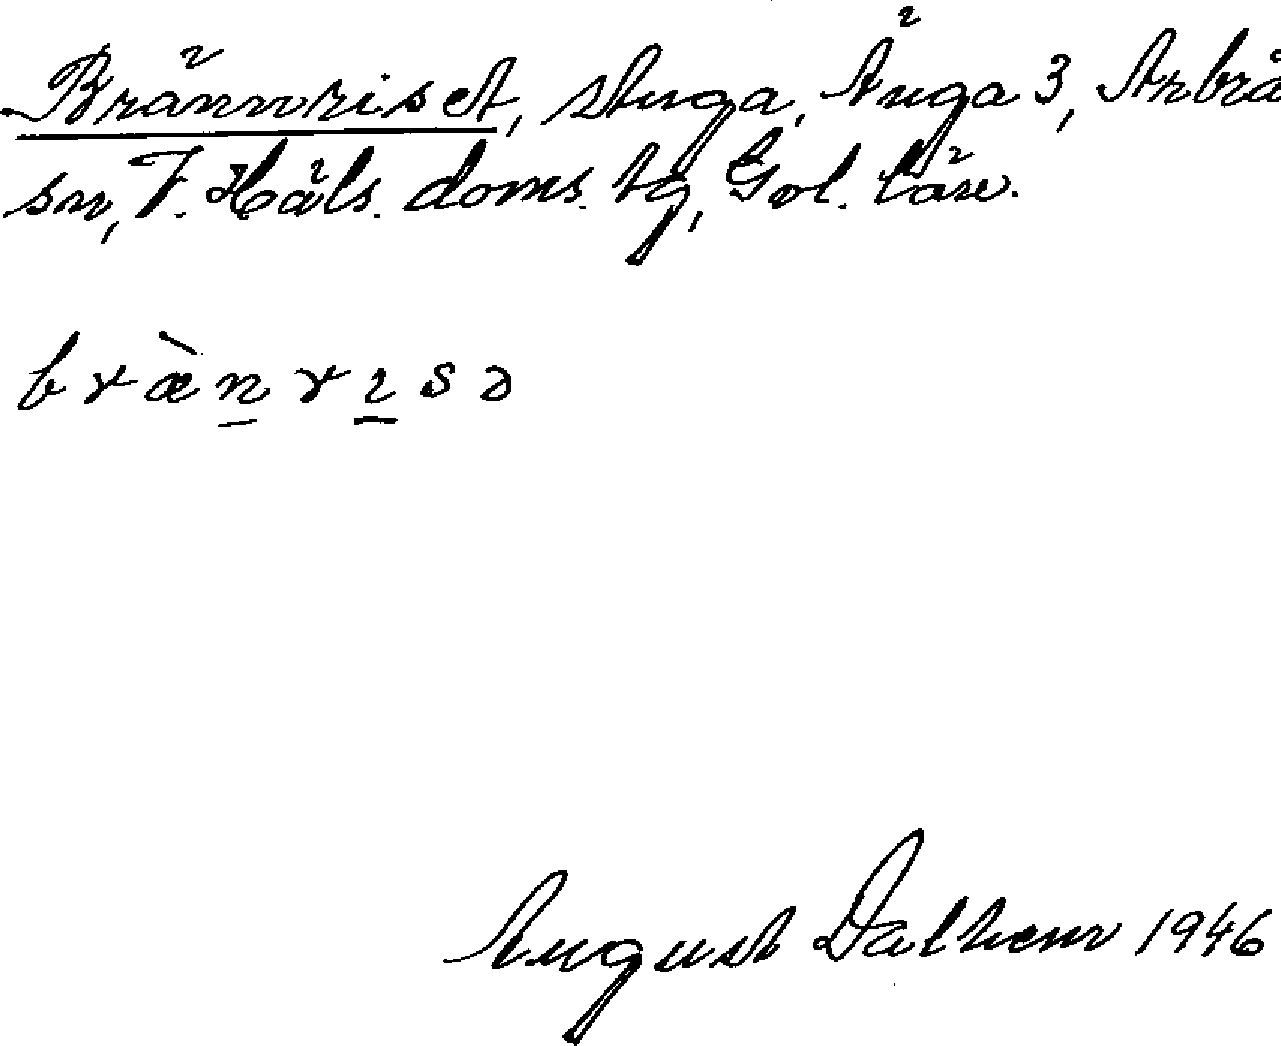 Brännriset, stuga, Änga 3, Arbrå
sn, V. Häls. doms. tg, Gvl. län.
b r æ̀ n̲ r ɪ̲ s ə
August Dalhem 1946